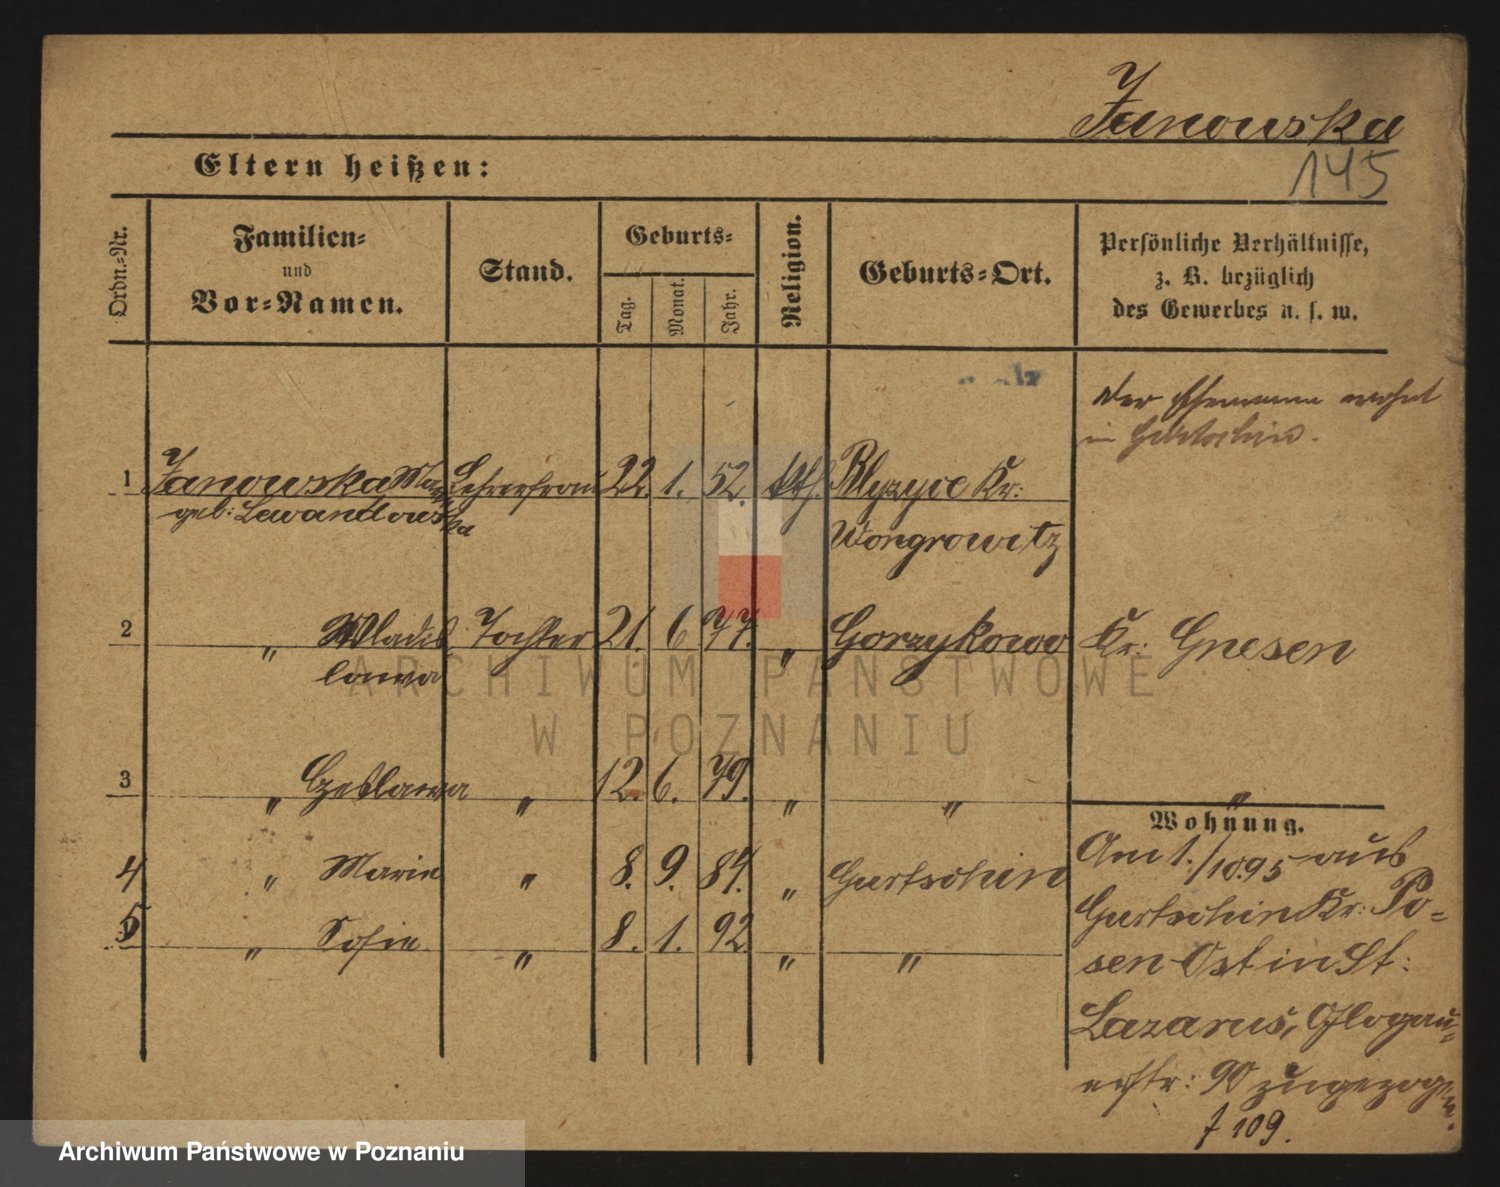 Janowska
145
Eltern heißen:
Ordn.-Nr.
Familien-
und
Vor-Namen.
Stand.
Geburts-
Tag.
Monat.
Jahr.
Religion.
Geburts-Ort.
Persönliche Verhältnisse,
z. B. bezüglich
des Gewerbes u. s. w.
Der Ehemann wohnt
in Gurtschin.
1 Janowska Lehrerfrau 22. 1. 52. kth. Kr:
geb: Lewandowska
Wongrowitz
2 " Wladis Tochter 21. 6 77. " Gorzykowo Kr: Gnesen
lawa
3 " Czeslawa " 12. 6. 79. " " "
Wohnung.
4 " Marie " 8. 9. 84. " Gurtschin
5 " Sofie " 8. 1. 92. " "
Am 1./10.95 aus
Gurtschin Kr: Po-
sen Ost in St:
Lazarus, Glogau-
erstr: 90 zugezogen.
f 109.
ARCHIWUM PAŃSTWOWE
W POZNANIU
Archiwum Państwowe w Poznaniu